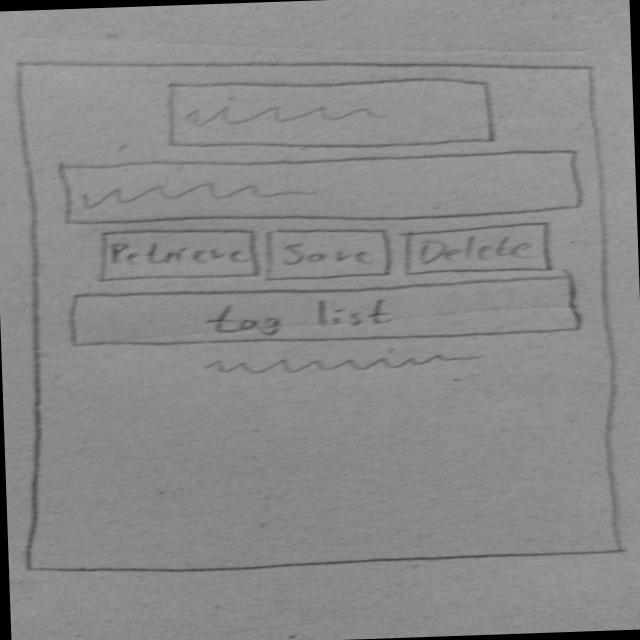 Retrieve Save Delete
Log list